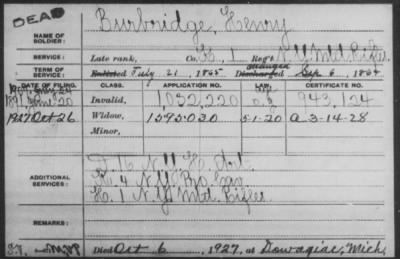 DEAD
NAME OF SOLDIER: Burbridge, Henry
SERVICE: Late rank, Co. H, 1 Reg't N.Y. Mtd Rifles
TERM OF SERVICE: Enlisted July 21, 1865 Discharged Sep 6, 186
DATE OF FILING. CLASS. APPLICATION NO. CERTIFICATE NO.
Invalid, 1,052,220 943,124
1927 Oct 26 Widow, 1585030 5-1-20 a 3-14-28
Minor,
ADDITIONAL SERVICES: N.Y. H. Art.
4 N.Y. Pro. Cav
H. 1 N.Y. Mtd. Rifles
REMARKS:
Died Oct 6, 1927, at Dowagiac, Mich.